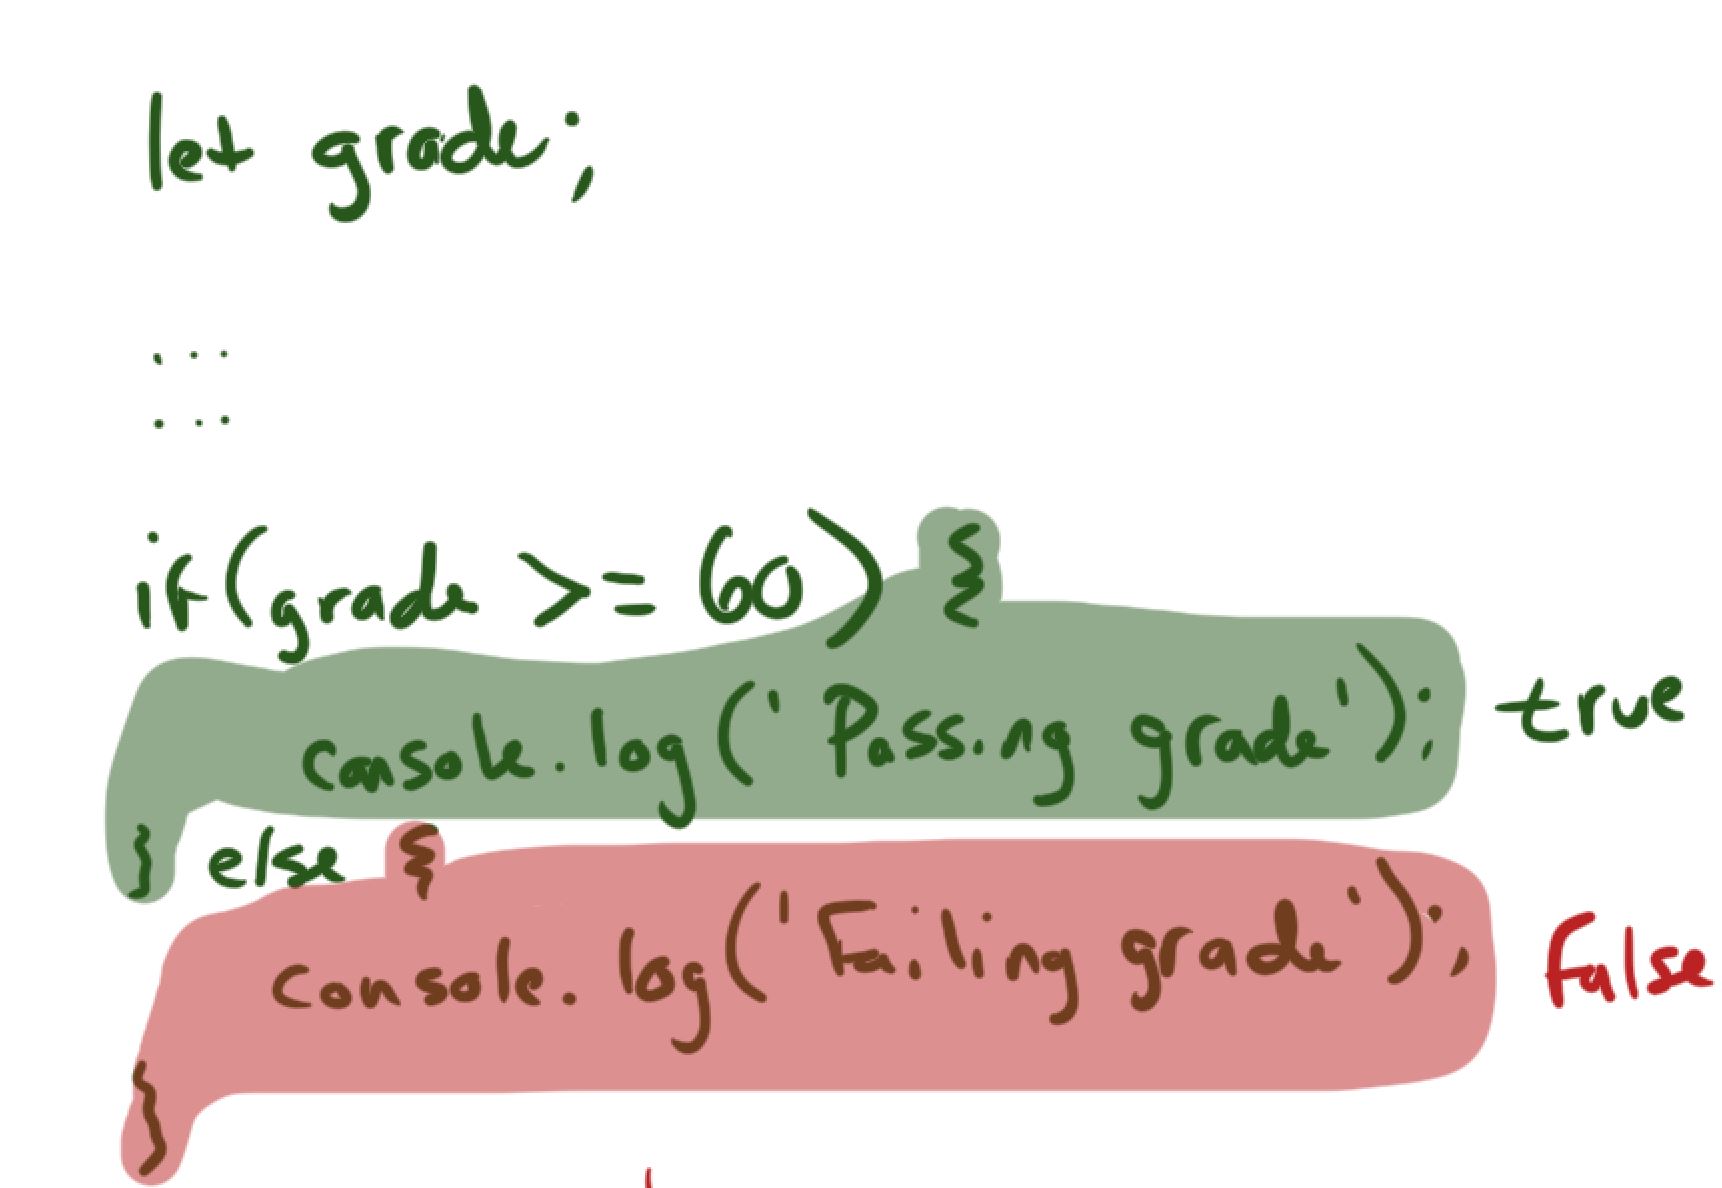 let grade;
...
...
if(grade >= 60) {
console.log('Passing grade'); true
} else {
console.log('Failing grade'); False
}